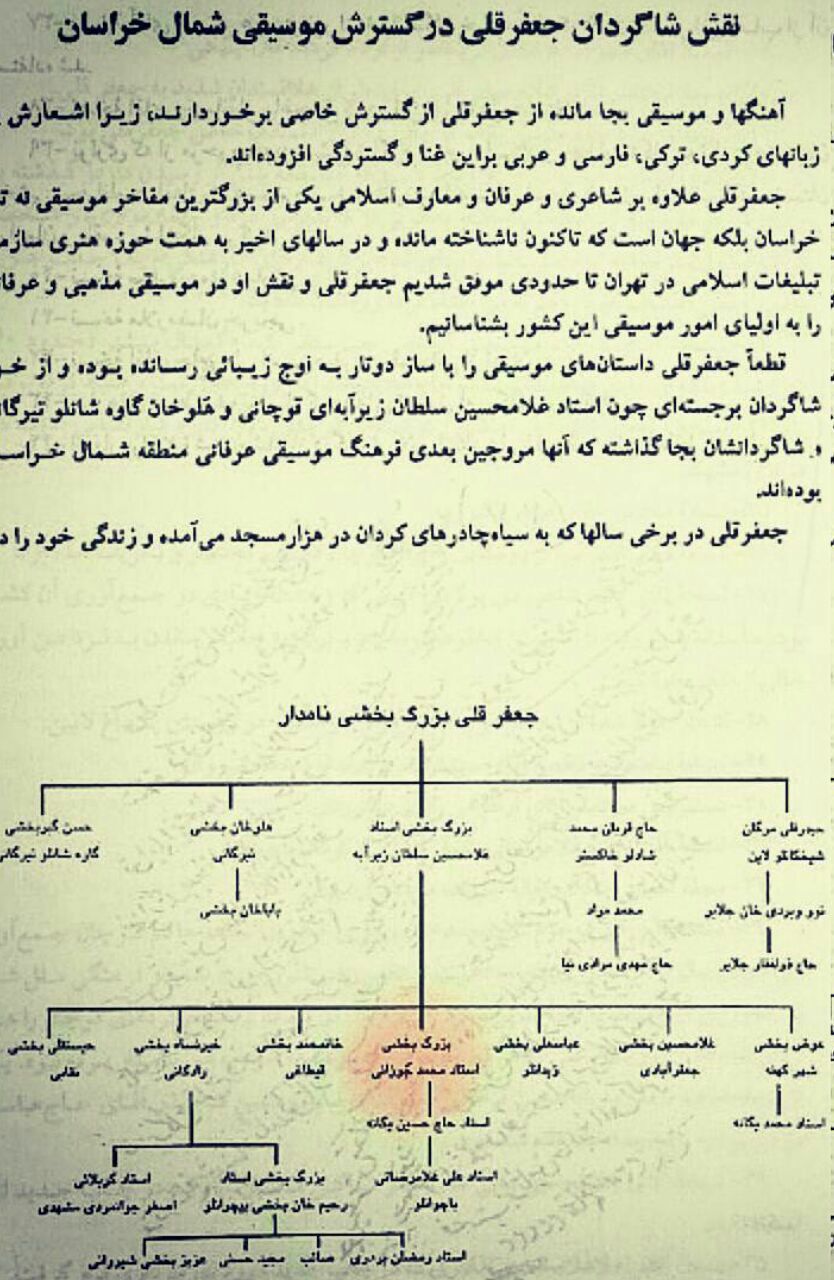 نقش شاگردان جعفرقلی در گسترش موسیقی شمال خراسان
آهنگها و موسیقی بجا مانده از جعفرقلی از گسترش خاصی برخوردارند، زیرا اشعارش
زبانهای کردی، ترکی، فارسی و عربی براین غنا و گستردگی افزوده‌اند.
جعفرقلی علاوه بر شاعری و عرفان و معارف اسلامی یکی از بزرگترین مفاخر موسیقی نه
خراسان بلکه جهان است که تاکنون ناشناخته مانده و در سالهای اخیر به همت حوزه هنری
تبلیغات اسلامی در تهران تا حدودی موفق شدیم جعفرقلی و نقش او در موسیقی مذهبی و
را به اولیای امور موسیقی این کشور بشناسانیم.
قطعاً جعفرقلی داستان‌های موسیقی را با ساز دوتار به اوج زیبائی رسانده بوده و از
شاگردان برجسته‌ای چون استاد غلامحسین سلطان زیرآبه‌ای قوچانی و هَلوخان گاوه شانلو
و شاگردانشان بجا گذاشته که آنها مروجین بعدی فرهنگ موسیقی عرفانی منطقه شمال
بوده‌اند.
جعفرقلی در برخی سالها که به سیاه‌چادرهای کردان در هزارمسجد می‌آمده و زندگی خود را
جعفر قلی بزرگ بخشی نامدار
حیدرقلی مرگان
حاج قربان محمد
بزرگ بخشی استاد
هلوخان بخشی
بخشی
شیخکانلو لاین
شادلو خاکستر
غلامحسین سلطان زیرآبه
تیرگانی
شانلو تیرگانی
ویردی خان جلایر
محمد مراد
باباخان بخشی
حاج ذوالفقار جلایر
حاج مهدی مرادی نیا
عوض بخشی
غلامحسین بخشی
عباسعلی بخشی
بزرگ بخشی
خانمحمد بخشی
بخشی
حسنقلی بخشی
شهر کهنه
جعفرآبادی
زیدانلو
استاد محمد جوزانی
قیطاقی
رادکانی
استاد محمد یگانه
استاد حاج حسین یگانه
استاد علی غلامرضائی
بزرگ بخشی استاد
استاد کربلائی
باچوانلو
رحیم خان بخشی بیچرانلو
اصغر جوانمردی مشهدی
استاد رمضان بردری
صائب
مجید حسنی
عزیز بخشی شیروانی